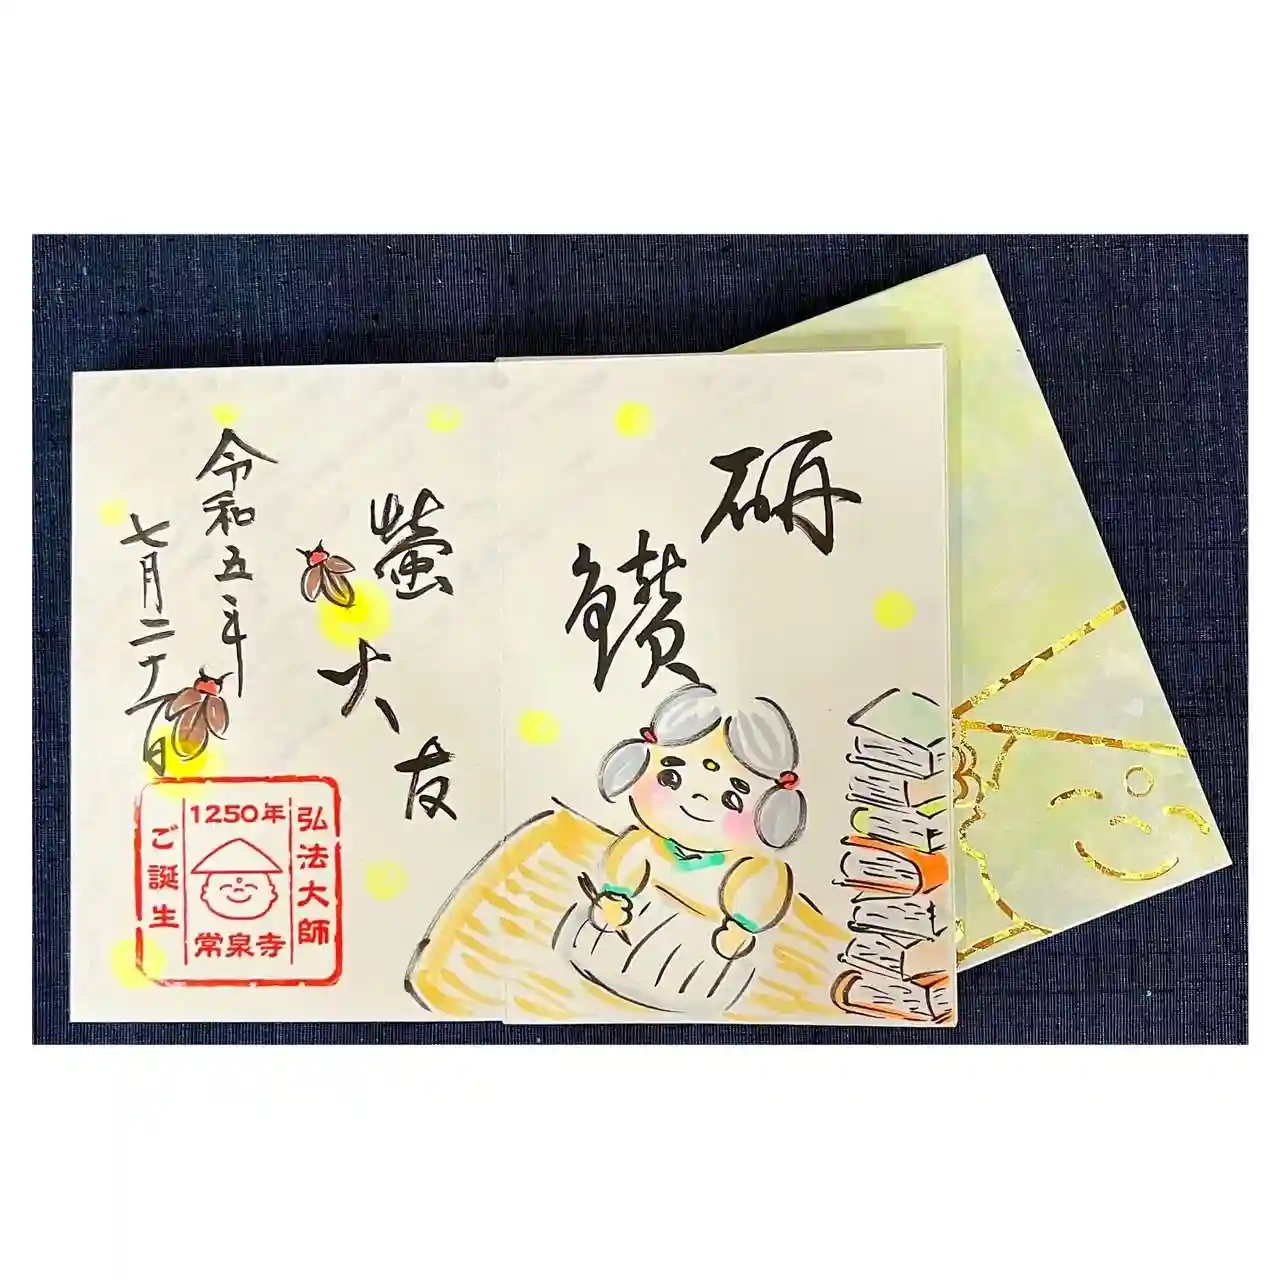 研鑽
螢火友
令和五年
七月二十一日
弘法大師
1250年
常泉寺
ご誕生